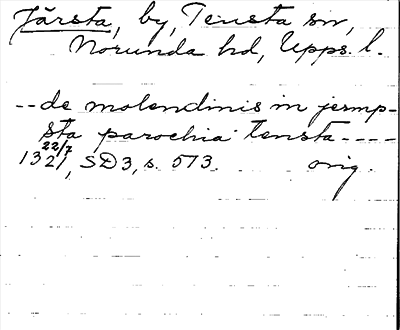 Järsta, by, Tensta sn,
Norunda hd, Upps. l.
-- de molendinis in jermp-
sta parochia tensta ----
22/7
1321, SD3, s. 573. orig.